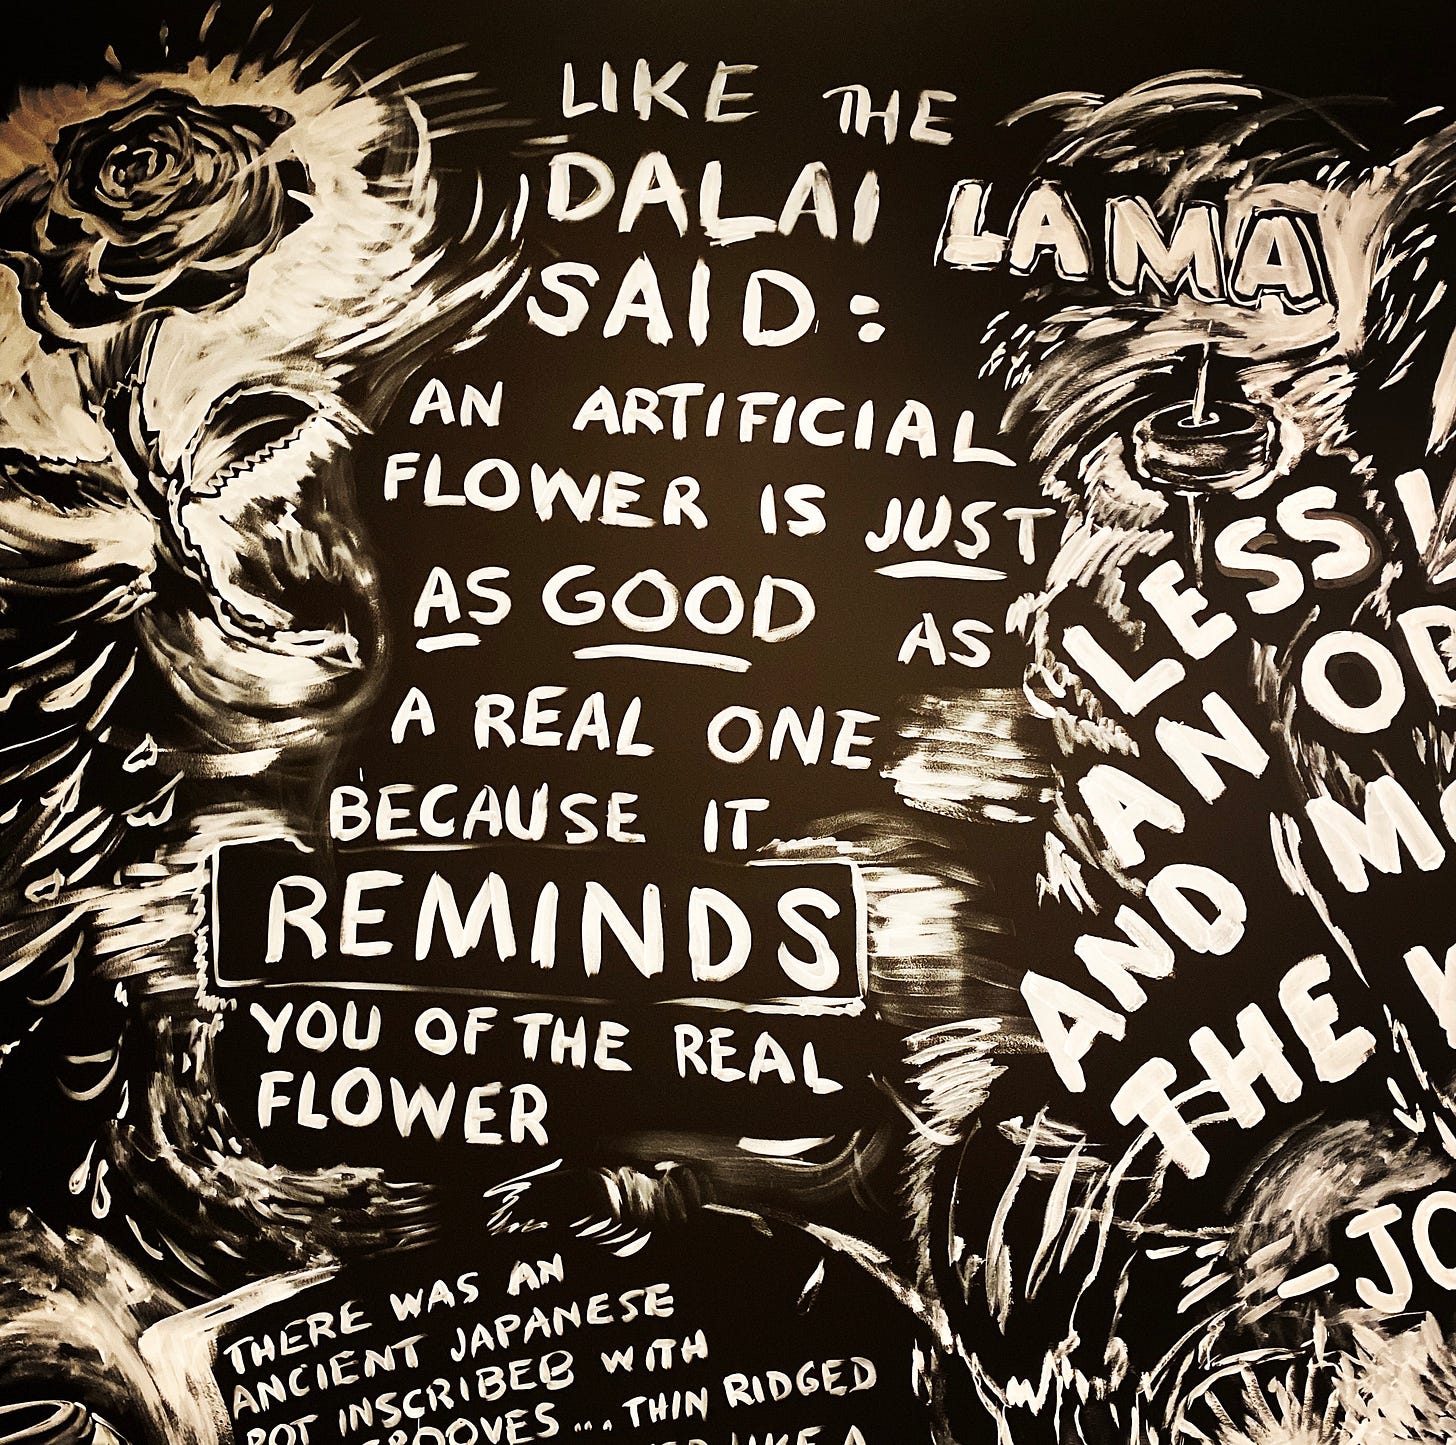 LIKE THE
DALAI LAMA
SAID:
AN ARTIFICIAL
FLOWER IS JUST
AS GOOD AS
A REAL ONE
BECAUSE IT
REMINDS
YOU OF THE REAL
FLOWER
THERE WAS AN
ANCIENT JAPANESE
POT INSCRIBEB WITH
GROOVES ... THIN RIDGED
LIKE A
LESS
AN
AND
THE
-JO